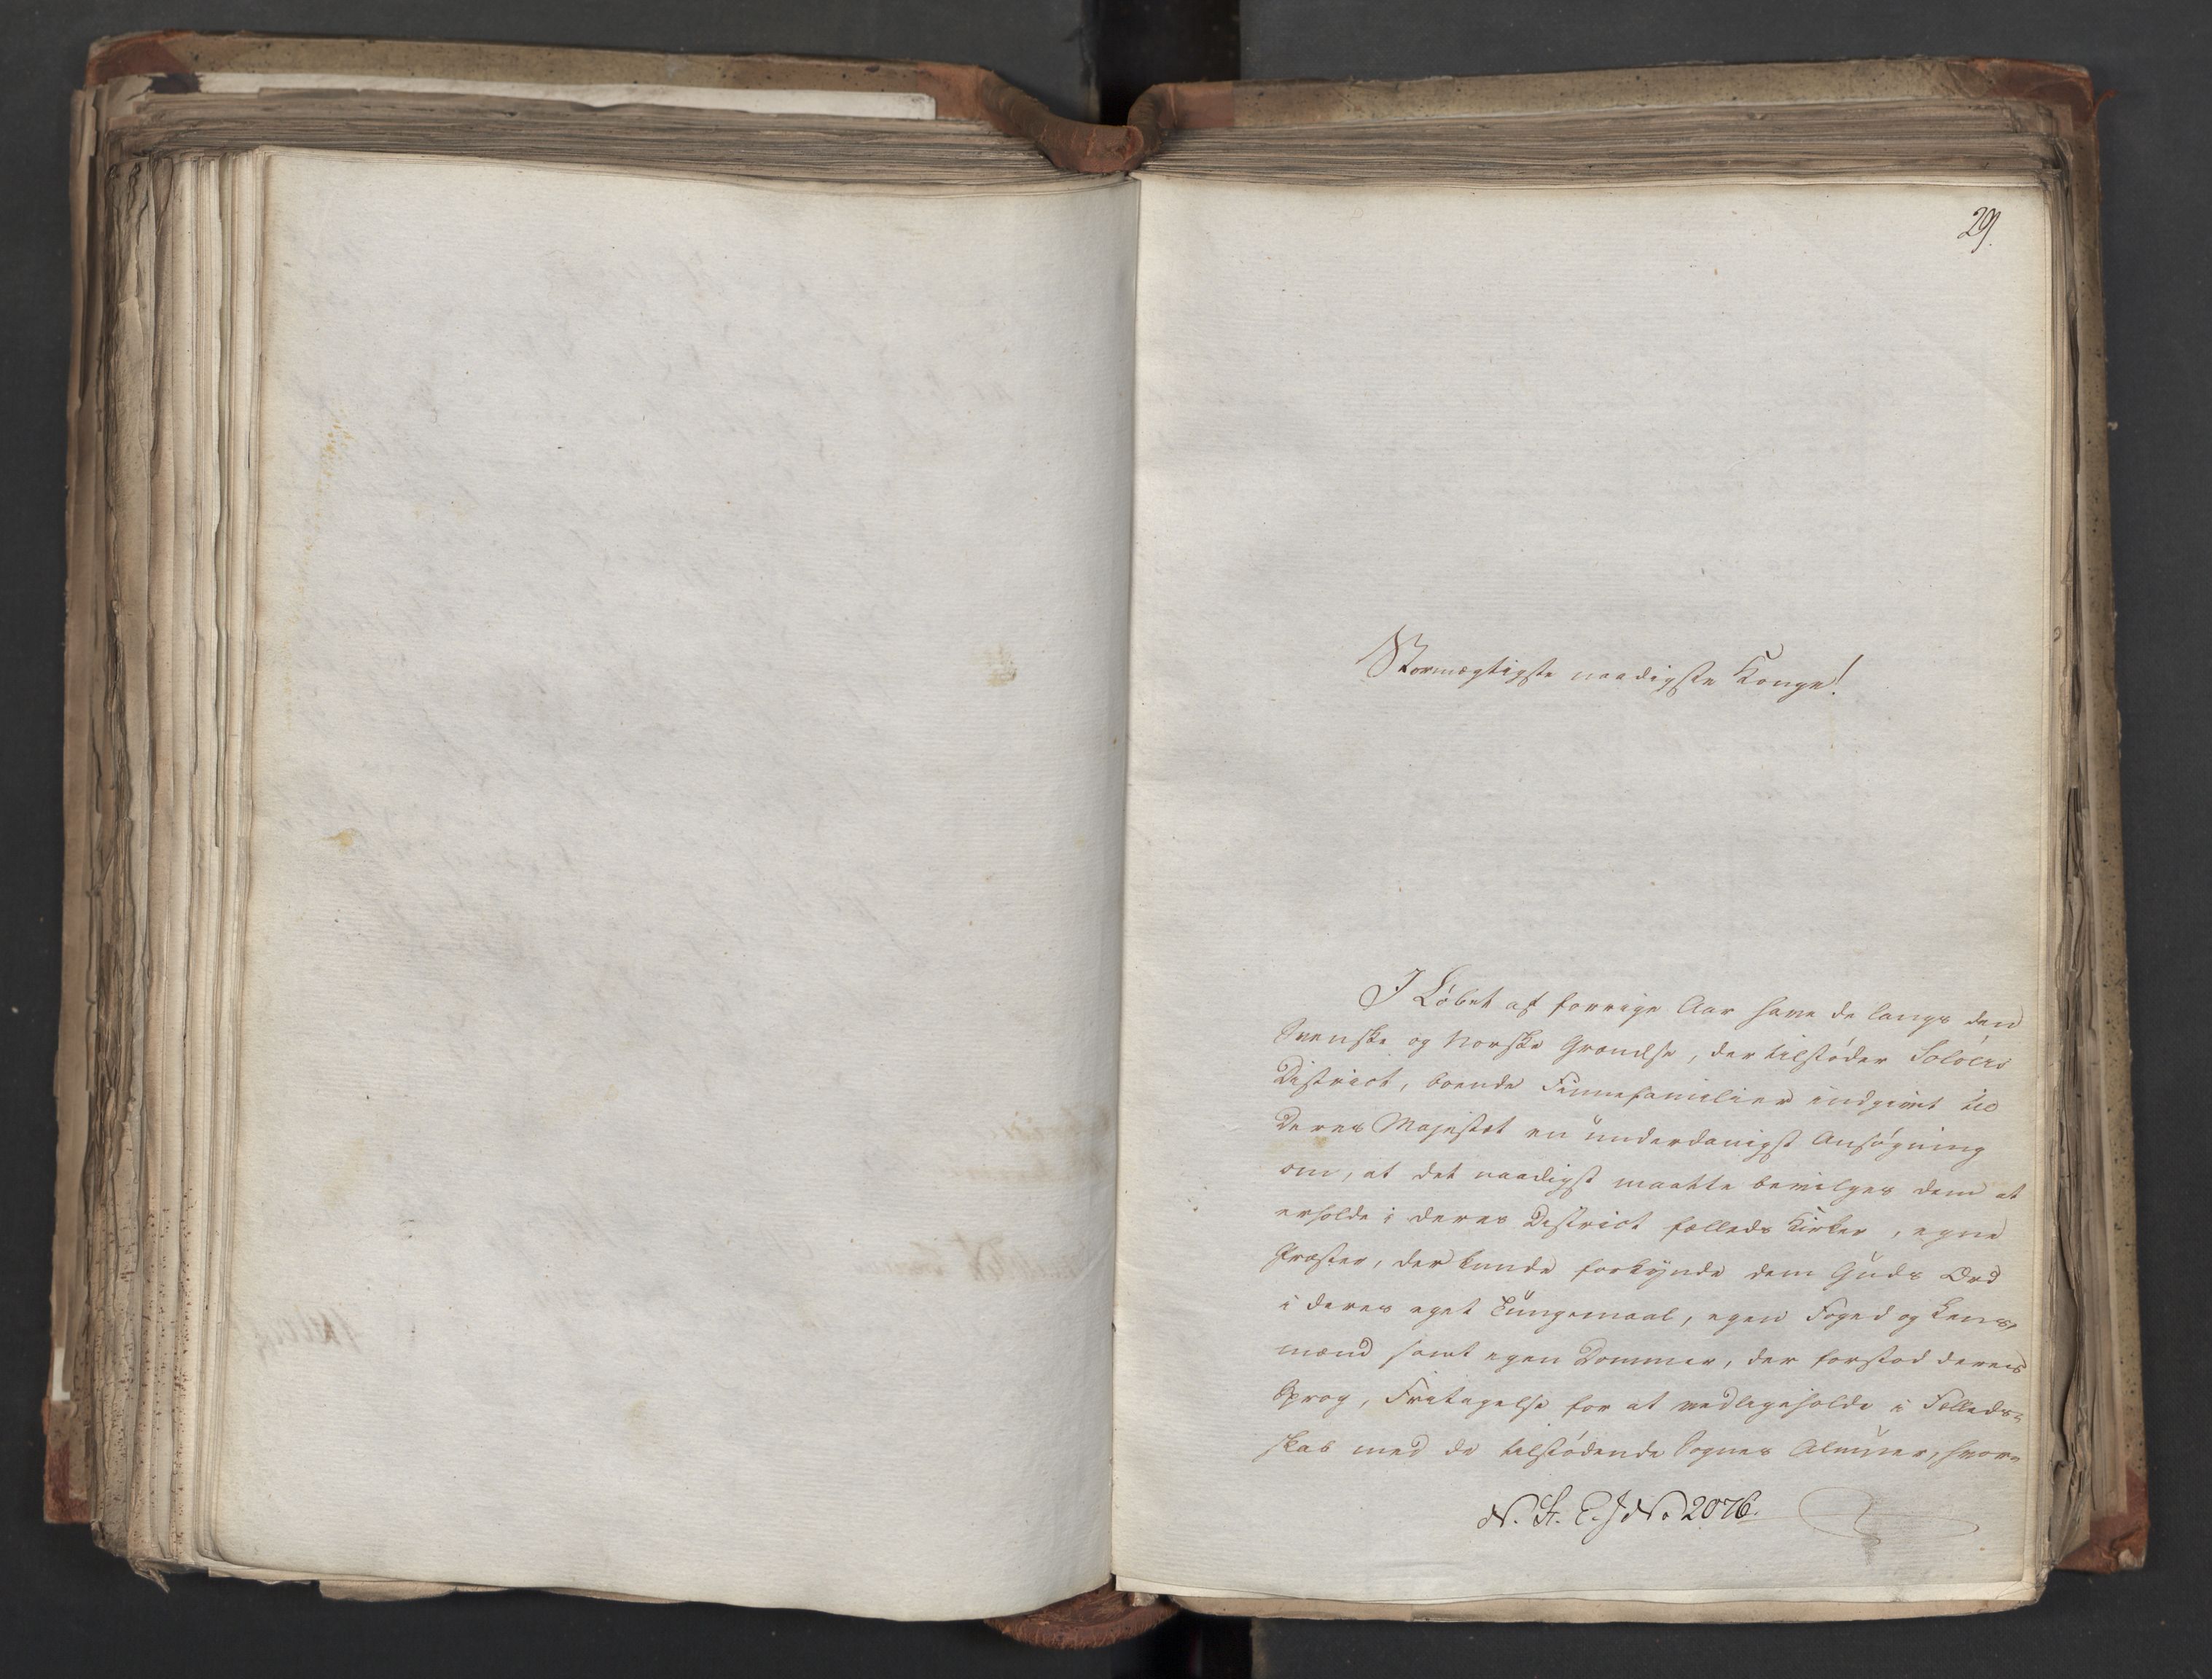 29.
Stormægtigste naadigste Konge!
I Løbet af forrige Aar have de langs den
Svenske og Norske Grændse, der tilstøder Soløers
District, boende Finnefamilier indgivet til
Deres Majestæt en underdanigst Ansøgning
om, at det naadigst maatte bevilges dem at
erholde i deres District fælleds Kirker, egne
Præster, der kunde forkynde dem Guds Ord
i deres eget Tungemaal, egen Foged og Lens-
mænd samt egen Dommer, der forstod deres
Sprog, Fritagelse for at vedligeholde i Fælleds-
skab med de tilstødende Sognes Almuer, hvor-
N. St. E. J No. 2076.